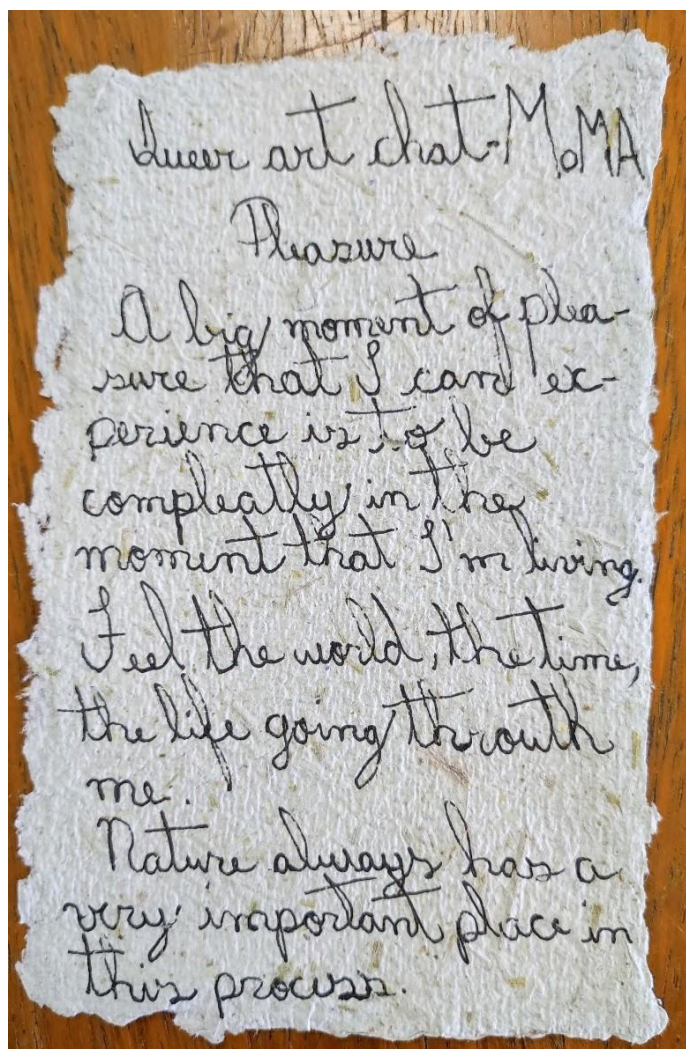 Queer art chat-MoMA
Pleasure
A big moment of plea-
sure that I can ex-
perience is to be
compleatly in the
moment that I'm living.
Feel the world, the time,
the life going throuth
me.
Nature always has a
very important place in
this process.